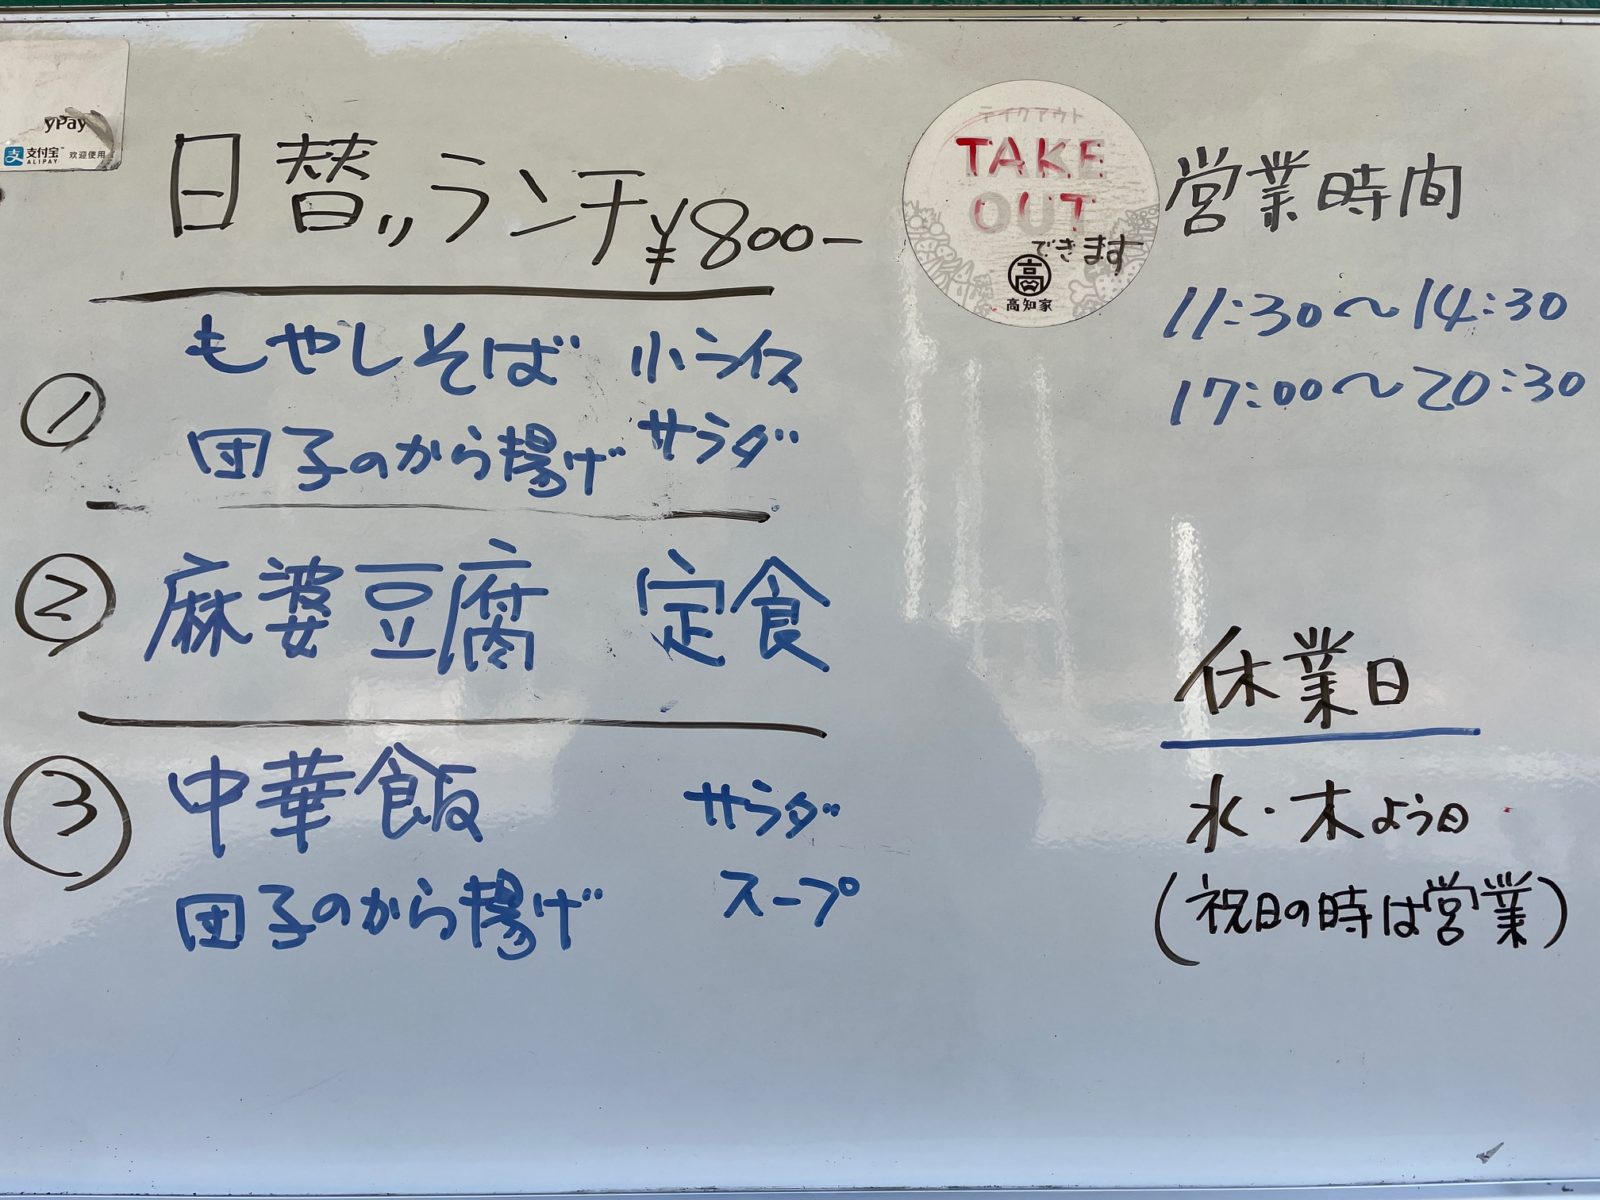 yPay
支付宝™ 欢迎使用
ALIPAY
日替りランチ ¥800-
① もやしそば 小ライス
団子のから揚げ サラダ
② 麻婆豆腐 定食
③ 中華飯 サラダ
団子のから揚げ スープ
テイクアウト
TAKE
OUT
できます
高
高知家
営業時間
11:30〜14:30
17:00〜20:30
休業日
水・木よう日
(祝日の時は営業)